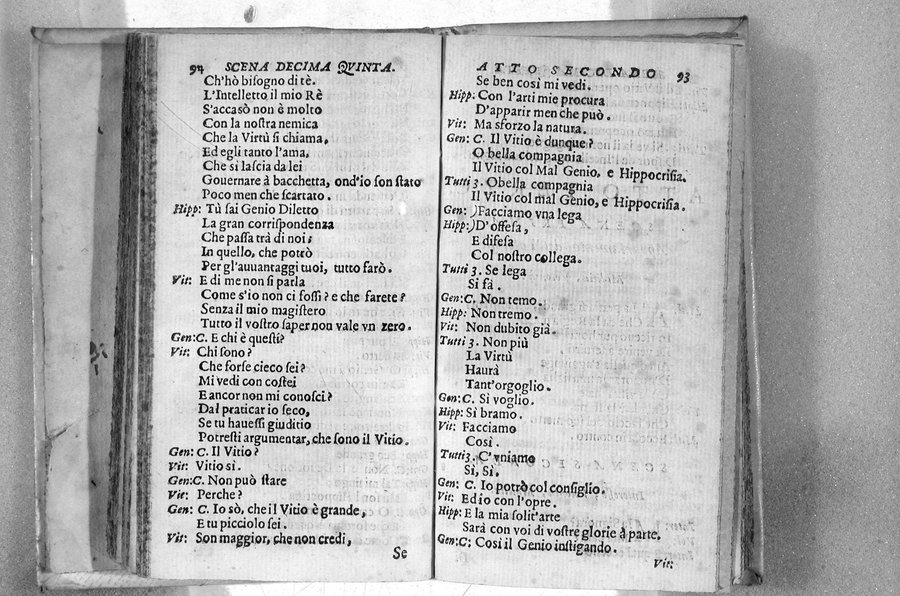 94 SCENA DECIMA QVINTA.
Ch'hò biſogno di tè.
L'Intelletto il mio Rè
S'accasò non è molto
Con la noſtra nemica
Che la Virtù ſi chiama,
Ed egli tanto l'ama,
Che ſi laſcia da lei
Gouernare à bacchetta, ond'io ſon ſtato
Poco men che ſcartato.
Hipp: Tù ſai Genio Diletto
La gran corriſpondenza
Che paſſa trà di noi;
In quello, che potrò
Per gl'auuantaggi tuoi, tutto farò.
Vit: E di me non ſi parla
Come s'io non ci foſſi? e che farete?
Senza il mio magiſtero
Tutto il voſtro ſaper non vale vn zero.
Gen:C. E chi è queſti?
Vit: Chi ſono?
Che forſe cieco ſei?
Mi vedi con coſtei
E ancor non mi conoſci?
Dal praticar io ſeco,
Se tu haueſſi giuditio
Potreſti argumentar, che ſono il Vitio.
Gen: C. Il Vitio?
Vit: Vitio sì.
Gen:C. Non può ſtare
Vit: Perche?
Gen: C. Io sò, che il Vitio è grande,
E tu picciolo ſei.
Vit: Son maggior, che non credi,
Se
ATTO SECONDO 93
Se ben così mi vedi.
Hipp: Con l'arti mie procura
D'apparir men che può.
Vit: Ma sforzo la natura.
Gen: C. Il Vitio è dunque?
O bella compagnia
Il Vitio col Mal Genio, e Hippocriſia.
Tutti 3. O bella compagnia
Il Vitio col mal Genio, e Hippocriſia.
Gen: )Facciamo vna lega
Hipp:)D'offeſa,
E difeſa
Col noſtro collega.
Tutti 3. Se lega
Si fà.
Gen:C. Non temo.
Hipp: Non tremo.
Vit: Non dubito già.
Tutti 3. Non più
La Virtù
Haurà
Tant'orgoglio.
Gen:C. Sì voglio.
Hipp: Sì bramo.
Vit: Facciamo
Così.
Tutti 3. C'vniamo
Sì, Sì.
Gen: C. Io potrò col conſiglio.
Vit: Ed io con l'opre.
Hipp: E la mia ſolit'arte
Sarà con voi di voſtre glorie à parte.
Gen:C: Così il Genio inſtigando.
Vit: